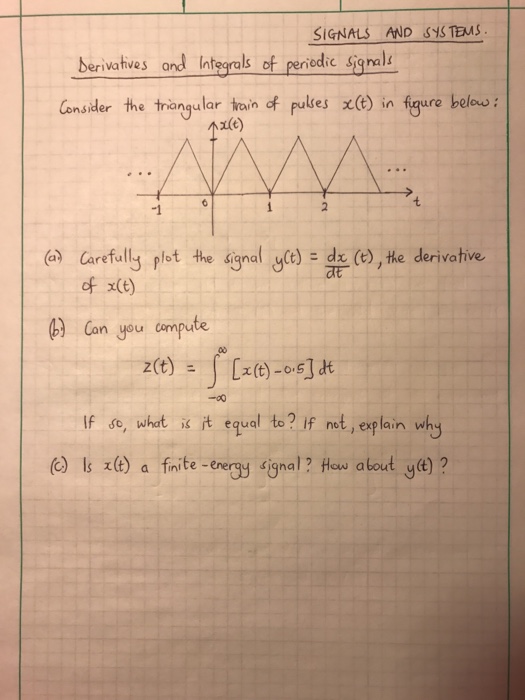 SIGNALS AND SYSTEMS.
Derivatives and Integrals of periodic signals
Consider the triangular train of pulses x(t) in figure below:
x(t)
... ...
-1 0 1 2 t
(a) Carefully plot the signal y(t) = dx/dt (t), the derivative
of x(t)
(b) Can you compute
z(t) = ∫_{-∞}^{∞} [x(t)-0.5] dt
If so, what is it equal to? If not, explain why
(c) Is x(t) a finite-energy signal? How about y(t)?